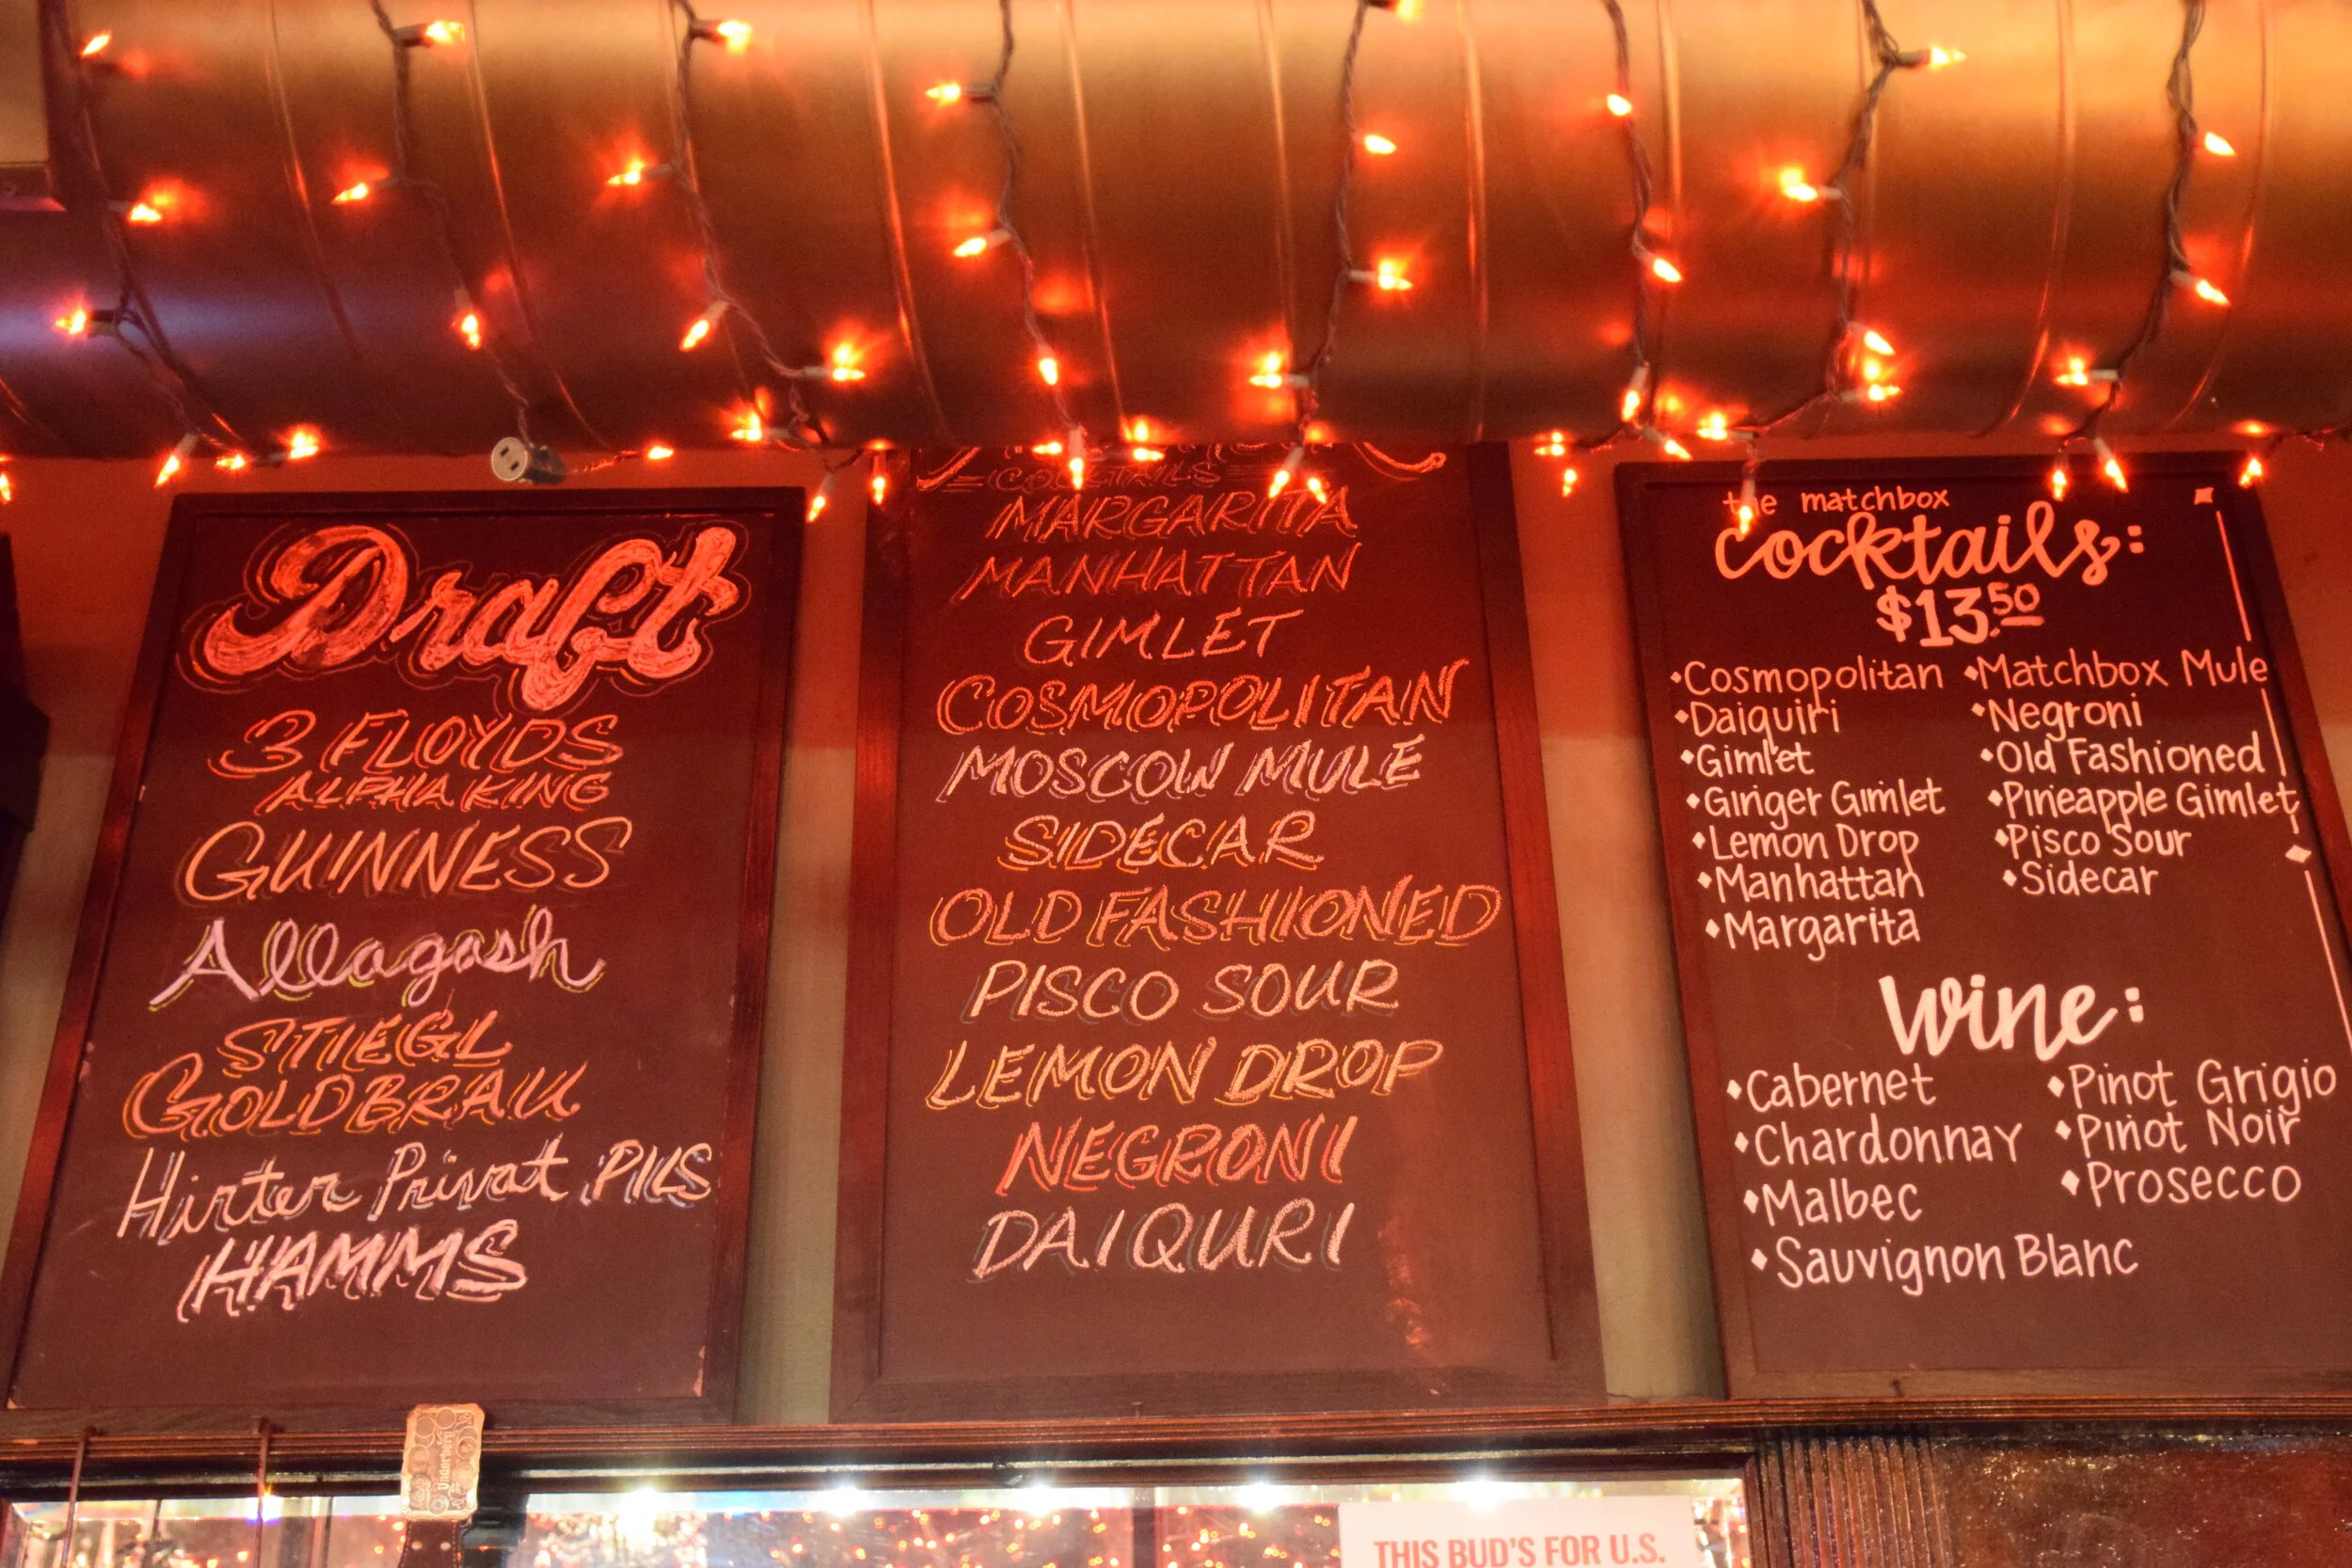 Draft
3 FLOYDS
ALPHA KING
GUINNESS
Allagash
STIEGL
GOLDBRAU
Hirter Privat PILS
HAMMS
COCKTAILS
MARGARITA
MANHATTAN
GIMLET
COSMOPOLITAN
MOSCOW MULE
SIDECAR
OLD FASHIONED
PISCO SOUR
LEMON DROP
NEGRONI
DAIQURI
the matchbox
cocktails:
$13.50
•Cosmopolitan •Matchbox Mule
•Daiquiri •Negroni
•Gimlet •Old Fashioned
•Ginger Gimlet •Pineapple Gimlet
•Lemon Drop •Pisco Sour
•Manhattan •Sidecar
•Margarita
Wine:
•Cabernet •Pinot Grigio
•Chardonnay •Pinot Noir
•Malbec •Prosecco
•Sauvignon Blanc
Underberg
THIS BUD'S FOR U.S.